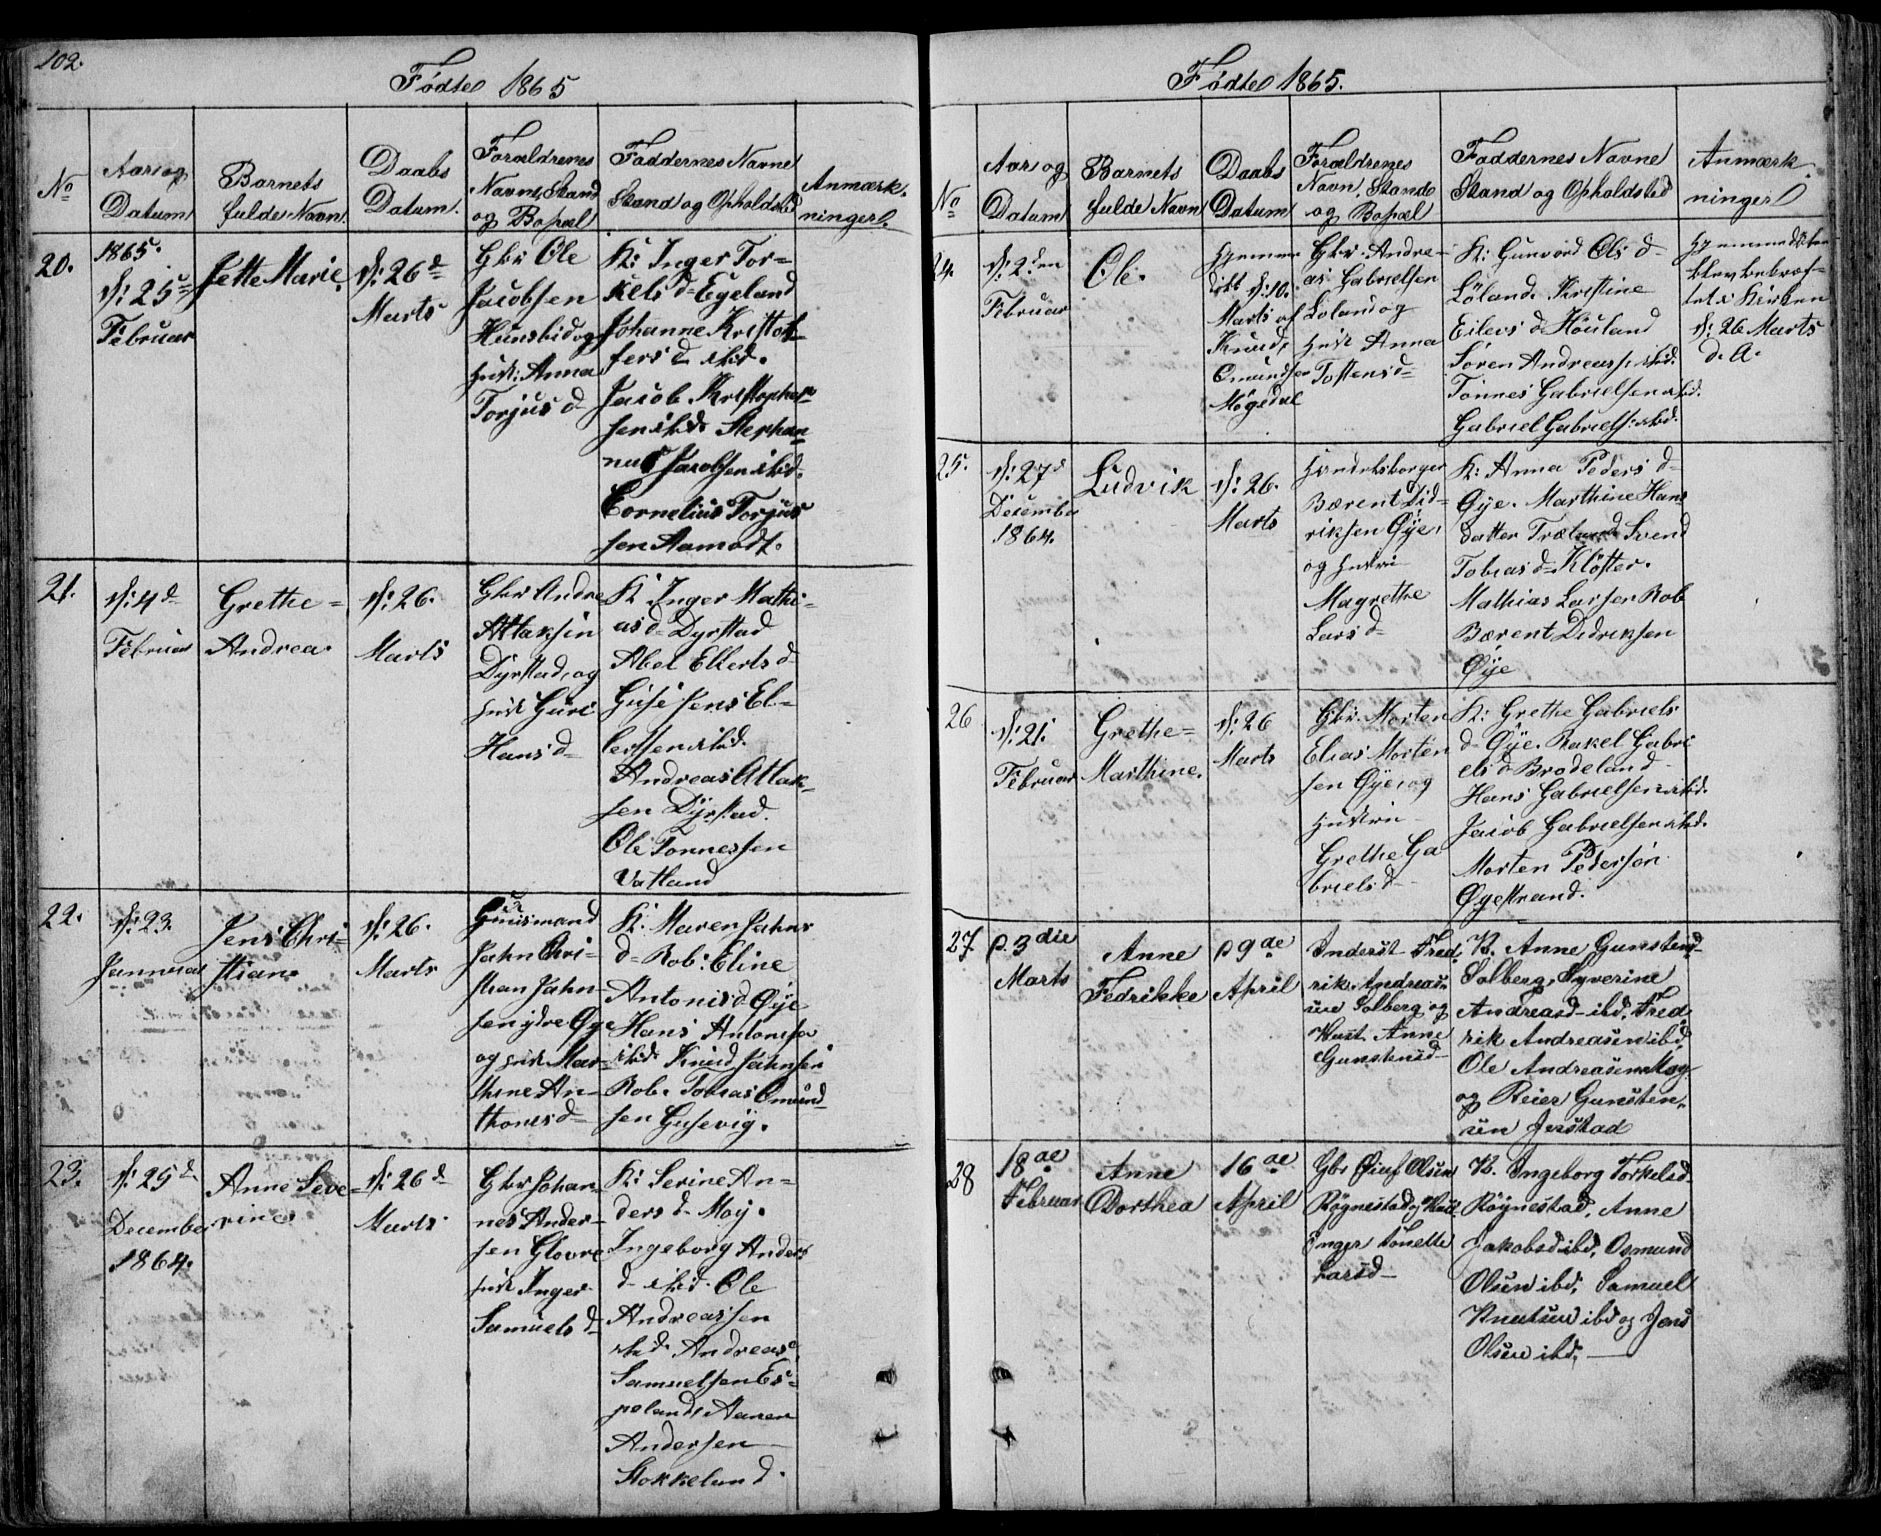 102.
Fødte 1865
No
Aar og
Datum
Barnets
fulde Navn
Daabs
Datum.
Forældrenes
Navn, Stand
og Bopæl
Faddernes Navne
Stand og Opholdsted
Anmærk-
ninger.
20.
1865.
d: 25de
Februar
Jette Marie.
d: 26d
Marts
Gbr Ole
Jacobsen
Hunsbid og
Hust: Anna
Torjus d
K: Inger Tor-
kels d Egeland
Johanne Kristof-
fers d ibd.
Jacob Kristopher-
sen ibd. Stephan-
nus Jacobsen ibd.
Cornelius Torjus
sen Aamodt.
21.
d: 4d
Februar
Grethe =
Andrea.
d: 26.
Marts
Gbr Andre
Attaksen
Dyrstad, og
Hust Guri
Hans d
K: Inger Mathi-
as d Dyrstad
Abel Ellerts d
Jens El-
lertsen ibd.
Andreas Attak-
sen Dyrstad.
Ole Tonnessen
Vatland
22.
d: 23.
Januar
Jens Chri-
stian
d: 26.
Marts
Huusmand
Jahn Chri-
stian Jahn-
sen ydre Øye
og Hust Mar-
thine An-
thonis d
K: Maren Jahns
d Rob: Eline
Antonis d Øye
Hans Antonisen
ibd. Knud Jahnsen
Rob. Tobias Omund-
sen Gusevig.
23.
d: 25d
December
1864.
Anne Seve-
rine
d: 26d
Marts
Gbr Johan-
nes Ander-
sen Glovre
Hust Inger
Samuels d
K: Serine An-
ders d Moy.
Ingeborg Anders
d ibd. Ole
Andreassen
ibd. Andreas
Samuelsen Es-
peland, Aanen
Andersen
Stokkeland.
Fødte 1865.
No
Aar og
Datum
Barnets
fulde Navn
Daabs
Datum
Forældrenes
Navn, Stand
og Bopæl
Faddernes Navne
Stand og Opholdsted
Anmærk-
ninger
24.
d: 2den
Februar
Ole.
Hjemme-
døbt d: 10.
Marts af
Knud
Omundsen
Møgedal
Gbr. Andre-
as Gabrielsen
Loland og
Hust Anna
Tostens d
K: Gunvord Ols d
Løland. Kristine
Eilevs d Høuland
Søren Andreass: ibd.
Tonnes Gabrielsen ibd.
Gabriel Gabriels: ibd.
Hjemmedaaben
blev bekræf-
tet i Kirken
d: 26 Marts
d. A.
25.
d: 27d
December
1864.
Ludvik
d: 26.
Marts
Handelsborger
Bærent Did-
riksen Øye,
og Hustru
Magrethe
Lars d
K: Anna Peders d
Øye. Marthine Hans
datter Træland Svend
Tobias d Klöster.
Mathias Larsen Rob
Bærent Didriksen
Øye
26
d: 21.
Februar
Grethe =
Marthine.
d: 26
Marts
Gbr. Morten
Elias Morten
sen Øye, og
Hustru
Grethe Ga
briels d
K: Grethe Gabriels
d Øye. Rakel Gabri
els d Brodeland
Hans Gabrielsen ibd.
Jacob Gabrielsen ibd.
Morten Pedersen
Øyestrand.
27
D. 3die
Marts
Anne
Fedrikke
D 9de
April
Inderst Fred-
rik Andreas-
sen Solberg og
Hust. Anne
Gunstensd
K. Anne Gunstensd
Solberg, Syverine
Andreasd ibd, Fred-
rik Andreasen ibd,
Ole Andreasen Moy
og Reier Gunsten-
sen Jerstad
28
18de
Februar
Anne
Dorthea
16de
April
Gbr Oluf Olsen
Røgnestad og Hust.
Inger Tonette
Larsd
K. Ingeborg Torkelsd
Røynestad, Anne
Jakobsd ibd, Osmund
Olsen ibd, Samuel
Knutsen ibd og Jens
Olsen ibd,